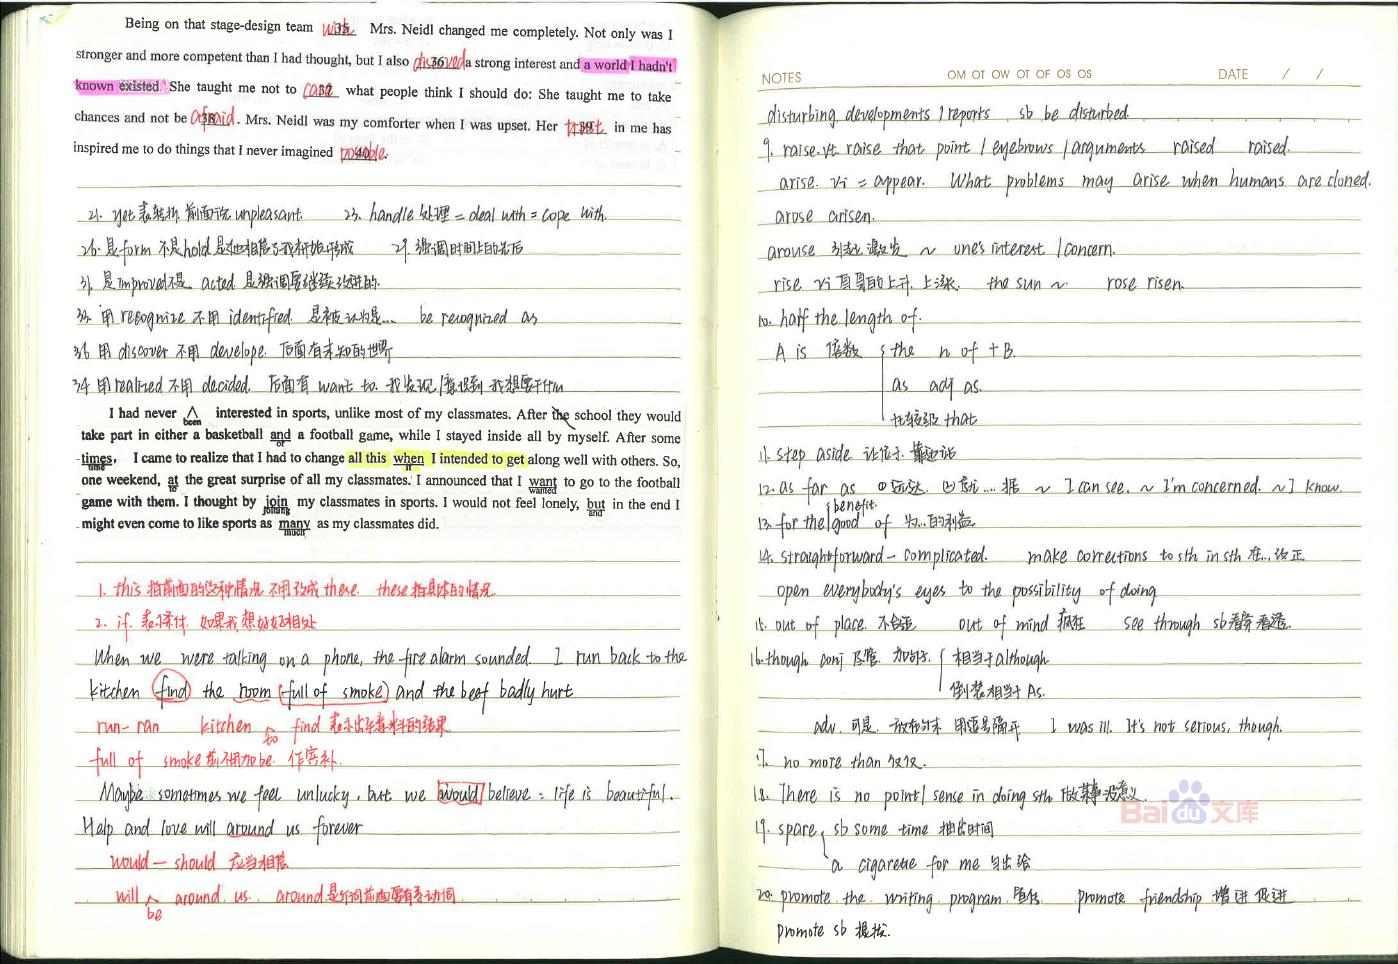 Being on that stage-design team with 35 Mrs. Neidl changed me completely. Not only was I
stronger and more competent than I had thought, but I also discovered 36 a strong interest and a world I hadn't
known existed. She taught me not to care 37 what people think I should do: She taught me to take
chances and not be afraid 38. Mrs. Neidl was my comforter when I was upset. Her trust 39 in me has
inspired me to do things that I never imagined possible 40.
21. yet 表转折 前面说 unpleasant. 23. handle 处理 = deal with = cope with.
26. 是form 不是hold 29. 强调时间上的先后
31. 是improved不是 acted 是强调要继续改进的.
33. 用 recognize 不用 identified. 是被认为是... be recognized as
36 用 discover 不用 develope. 后面有未知的世界
34 用realized 不用 decided. 后面有 want to. 我发现/意识到 我想要干什么
I had never ∧ interested in sports, unlike most of my classmates. After the school they would
been
take part in either a basketball and a football game, while I stayed inside all by myself. After some
or
times, I came to realize that I had to change all this when I intended to get along well with others. So,
time if
one weekend, at the great surprise of all my classmates. I announced that I want to go to the football
to wanted
game with them. I thought by join my classmates in sports. I would not feel lonely, but in the end I
joining and
might even come to like sports as many as my classmates did.
much
1. this 指前面的这种情况 不用改成 these. these指具体的情况
2. if. 表条件. 如果我想好好相处
When we were talking on a phone, the fire alarm sounded. I run back to the
kitchen find the room (full of smoke) and the beef badly hurt
run - ran kitchen to find 表示出乎意料的结果
full of smoke 前不用加be. 作宾补.
Maybe sometimes we feel unlucky, but we would believe : life is beautiful.
Help and love will around us forever
would — should 应当相信
will ∧ around us. around是介词前面要有系动词
be
NOTES OM OT OW OT OF OS OS DATE / /
disturbing developments / reports sb be disturbed.
9. raise. vt. raise that point / eyebrows / arguments raised raised.
arise. vi = appear. What problems may arise when humans are cloned.
arose arisen.
arouse 引起 激发 ~ one's interest / concern.
rise vi 自身的上升. 上涨. the sun ~ rose risen.
10. half the length of.
A is 倍数 the n of + B.
as adj as.
比较级 that
11. step aside 让位于. 靠边站
12. as far as ① 远达. ② 就.... 据 ~ I can see. ~ I'm concerned. ~ I know.
benefit.
13. for the good of 为...的利益
14. straightforward - complicated. make corrections to sth in sth 在...改正
open everybody's eyes to the possibility of doing
15. out of place. 不合适 out of mind 疯狂 see through sb 看穿 看透.
16. though conj 尽管. 加句子. 相当于although.
倒装相当于 As.
adv. 可是. 放在句末 用逗号隔开 I was ill. It's not serious, though.
17. no more than 仅仅.
18. There is no point / sense in doing sth 做某事没意义.
19. spare sb some time 抽出时间
a cigarette for me 匀出给
20. promote the writing program. promote friendship 增进 促进
promote sb 提拔.
Baidu文库